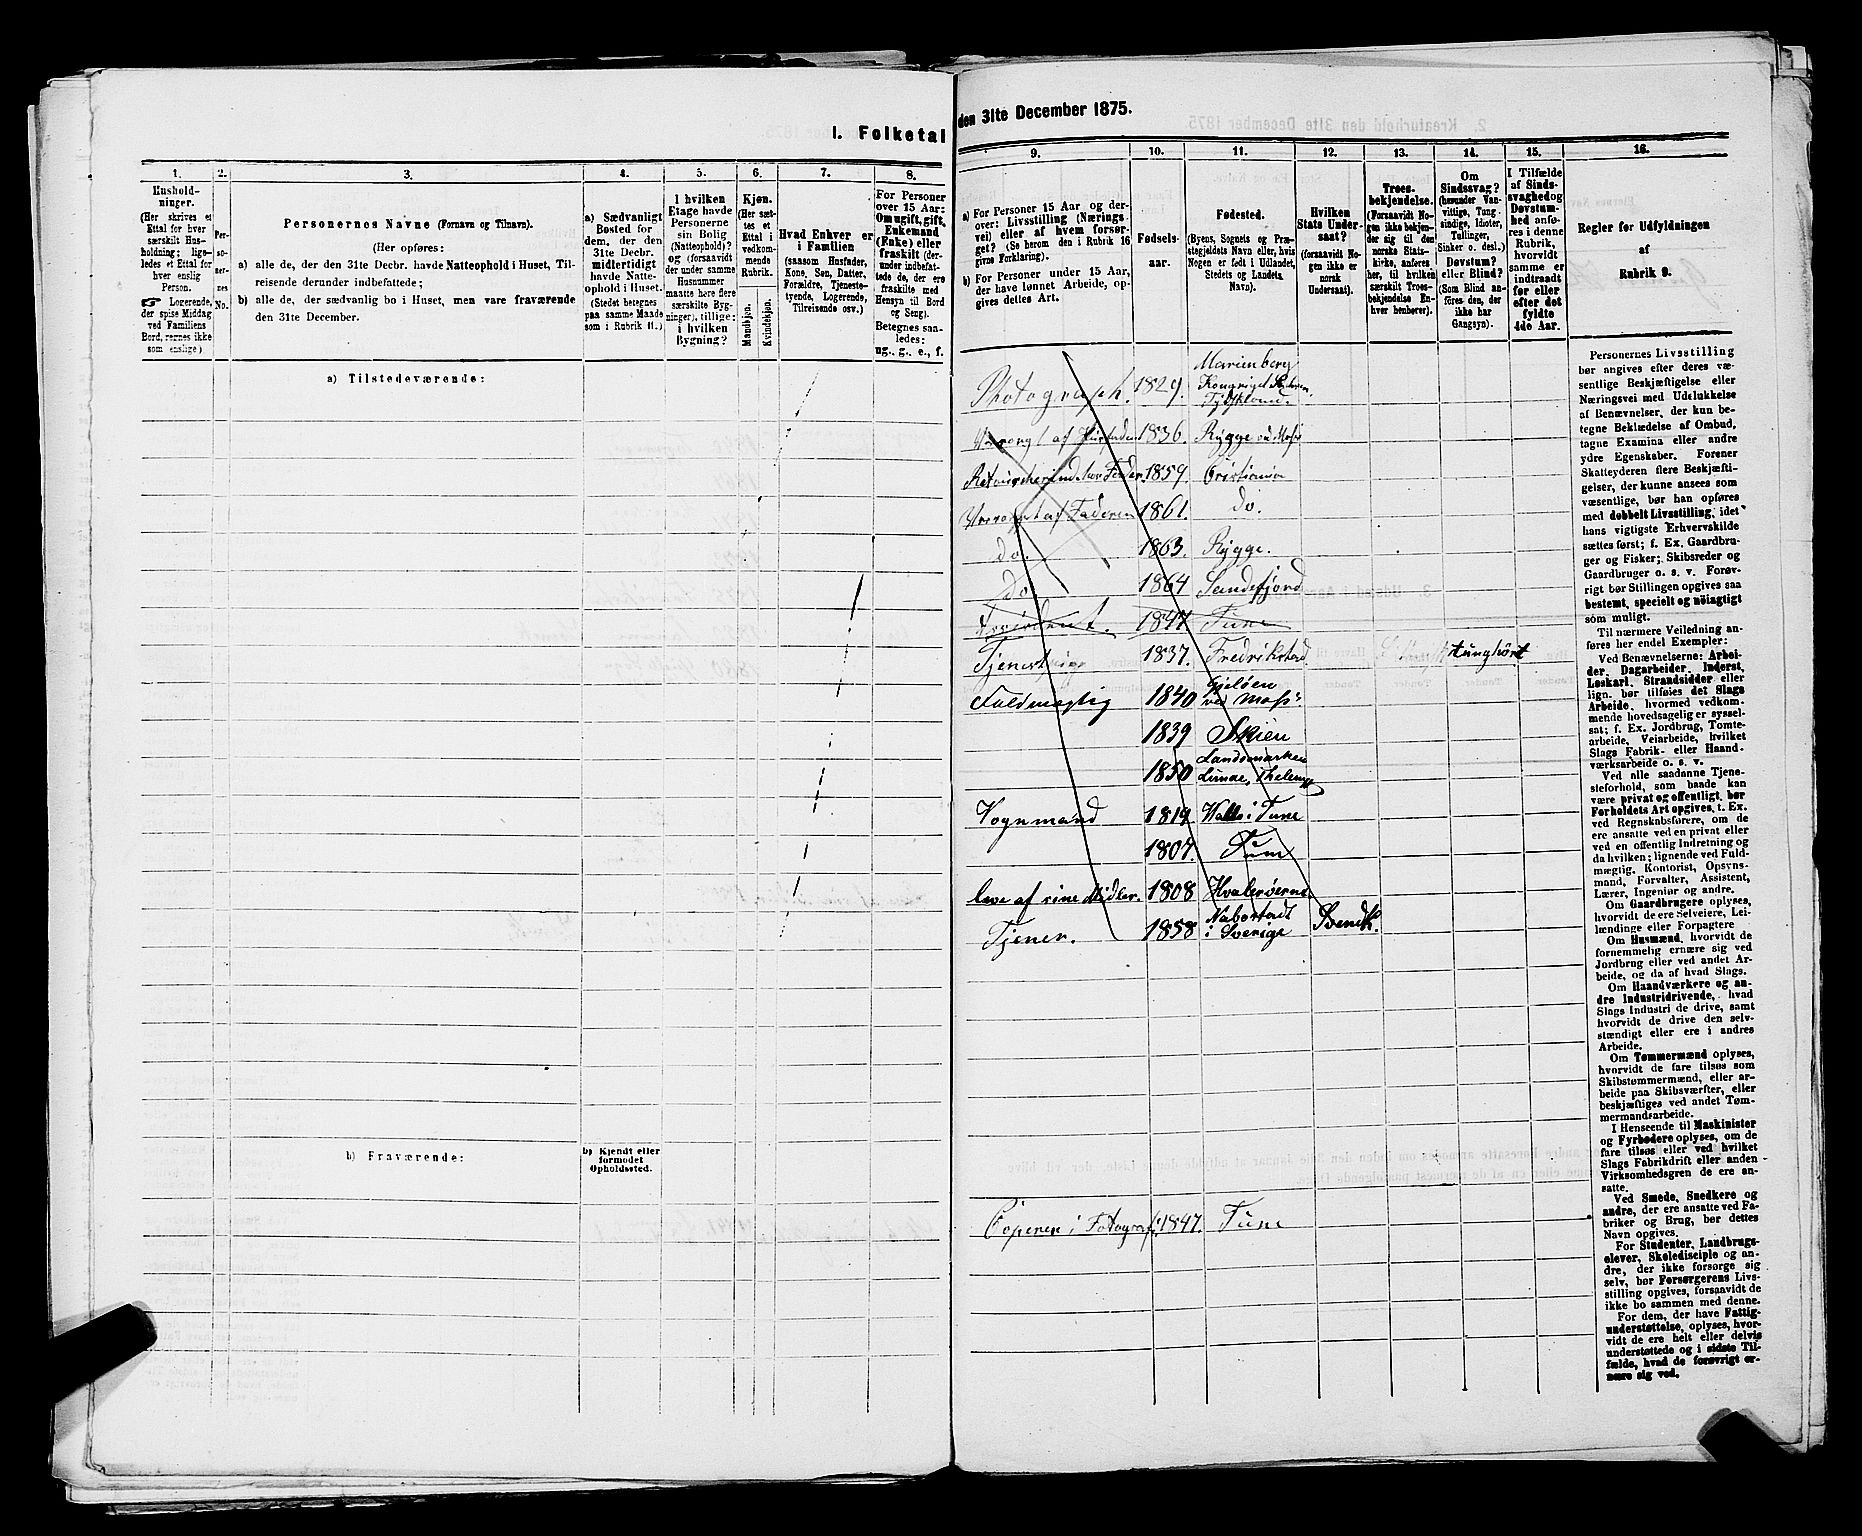 I. Folketal
den 31te December 1875.
1. 2. 3. 4. 5. 6. 7. 8.
Hushold-
ninger.
(Her skrives et
Ettal for hver
særskilt Hus-
holdning; lige-
ledes et Ettal for
hver enslig
Person.
Logerende,
der spise Middag
ved Familiens
Bord, regnes ikke
som enslige.)
Per-
so-
ner-
nes
No.
Personernes Navne (Fornavn og Tilnavn).
(Her opføres:
a) alle de, der den 31te Decbr. havde Natteophold i Huset, Til-
reisende derunder indbefattede;
b) alle de, der sædvanlig bo i Huset, men vare fraværende
den 31te December.
a) Sædvanligt
Bosted for
dem, der den
31te Decbr.
midlertidigt
havde Natte-
ophold i Huset.
(Stedet betegnes
paa samme Maade
som i Rubrik 11.)
I hvilken
Etage havde
Personerne
sin Bolig
(Natteophold)?
og (forsaavidt
der under samme
Husnummer
maatte høre flere
særskilte Byg-
ninger), tillige:
i hvilken
Bygning?
Kjøn.
(Her sæt-
tes et
Ettal i
vedkom-
mende
Rubrik.
Mandkjøn.
Kvindekjøn.
Hvad Enhver er
i Familien
(saasom Husfader,
Kone, Søn, Datter,
Forældre, Tjeneste-
tyende, Logerende,
Tilreisende osv.)
For Personer
over 15 Aar:
Om ugift, gift,
Enkemand
(Enke) eller
fraskilt (der-
under indbefat-
tede de, der ere
fraskilte med
Hensyn til Bord
og Seng).
Betegnes saa-
ledes:
ug., g., e., f.
a) Tilstedeværende:
b) Fraværende:
b) Kjendt eller
formodet
Opholdssted.
9. 10. 11. 12. 13. 14. 15. 16.
a) For Personer 15 Aar og der-
over: Livsstilling (Nærings-
vei) eller af hvem forsør-
get? (Se herom den i Rubrik 16
givne Forklaring).
b) For Personer under 15 Aar,
der have lønnet Arbeide, op-
gives dettes Art.
Fødsels-
aar.
Fødested.
(Byens, Sognets og Præ-
stegjeldets Navn eller, hvis
Nogen er født i Udlandet,
Stedets og Landets
Navn).
Hvilken
Stats Under-
saat?
(forsaavidt No-
gen ikke er
norsk
Undersaat).
Troes-
bekjendelse.
(Forsaavidt No-
gen ikke bekjen-
der sig til den
norske Stats-
kirke, anføres
her, til hvilken
særskilt Troes-
bekjendelse En-
hver henhører).
Om
Sindssvag?
(herunder Van-
vittige, Tung-
sindige, Idioter,
Tullinger,
Sinker o. desl.)
Døvstum?
eller Blind?
(Som Blind an-
føres den, der
ikke har
Gangsyn).
I Tilfælde
af Sinds-
svaghed og
Døvstum-
hed anfø-
res i denne
Rubrik,
hvorvidt
samme er
indtraadt
før eller
efter det
fyldte
4de Aar.
Regler for Udfyldningen
af
Rubrik 9.
Photograph. 1829. Marienberg
Kongriget
Tydskland.
1836. Rygge
1859. Cristiania
Forsørget af Faderen 1861. Do.
do. 1863. Rygge.
Do 1864 Sandefjord
1847 Tune
1837. Fredrikstad tunghørt
Fuldmægtig 1840 Gjeløen
ved Moss
1839 Skien
1850
Vognmand 1819 i Tune
1807.
leve af sine Midler. 1808 Hvaløerne
Tjener. 1858
i Sverige Svensk.
i Fotograf. 1847. Tune
Personernes Livsstilling
bør angives efter deres væ-
sentlige Beskjæftigelse eller
Næringsvei med Udelukkelse
af Benævnelser, der kun be-
tegne Beklædelse af Ombud,
tagne Examina eller andre
ydre Egenskaber. Forener
Skatteyderen flere Beskjæfti-
gelser, der kunne ansees som
væsentlige, bør han opføres
med dobbelt Livsstilling, idet
hans vigtigste Erhvervskilde
sættes først; f. Ex. Gaardbru-
ger og Fisker; Skibsreder og
Gaardbruger o. s. v. Forøv-
rigt bør Stillingen opgives saa
bestemt, specielt og nøiagtigt
som muligt.
Til nærmere Veiledning an-
føres her endel Exempler:
Ved Benævnelserne: Arbei-
der, Dagarbeider, Inderst,
Løskarl, Strandsidder eller
lign. bør tilføies det Slags
Arbeide, hvormed vedkom-
mende hovedsagelig er syssel-
sat; f. Ex. Jordbrug, Tomte-
arbeide, Veiarbeide, hvilket
Slags Fabrik- eller Haand-
værksarbeide o. s. v.
Ved alle saadanne Tjene-
steforhold, som baade kan
være privat og offentligt, bør
Forholdets Art opgives, f. Ex.
ved Regnskabsførere, om de
ere ansatte ved en privat eller
ved en offentlig Indretning og
da hvilken; lignende ved Fuld-
mægtig, Kontorist, Opsyns-
mand, Forvalter, Assistent,
Lærer, Ingeniør og andre.
Om Gaardbrugere oplyses,
hvorvidt de ere Selveiere, Lei-
lændinge eller Forpagtere
Om Husmænd, hvorvidt de
fornemmelig ernære sig ved
Jordbrug eller ved andet Ar-
beide, og da af hvad Slags.
Om Haandværkere og an-
dre Industridrivende, hvad
Slags Industri de drive, samt
hvorvidt de drive den selv-
stændigt eller ere i andres
Arbeide.
Om Tømmermænd oplyses,
hvorvidt de fare tilsøs som
Skibstømmermænd, eller ar-
beide paa Skibsværfter, eller
beskjæftiges ved andet Tøm-
mermandsarbeide.
I Henseende til Maskinister
og Fyrbødere oplyses, om de
fare tilsøs eller ved hvilket
Slags Fabrikdrift eller anden
Virksomhedsgren de ere an-
satte.
Ved Smede, Snedkere og
andre, der ere ansatte ved Fa-
briker og Brug, bør dettes
Navn opgives.
For Studenter, Landbrugs-
elever, Skoledisciple og an-
dre, der ikke forsørge sig
selv, bør Forsørgerens Livs-
stilling opgives, forsaavidt de
ikke bo sammen med denne.
For dem, der have Fattig-
understøttelse, oplyses, hvor-
vidt de ere helt eller delvis
understøttede og i sidste Til-
fælde, hvad de forøvrigt er-
nære sig ved.